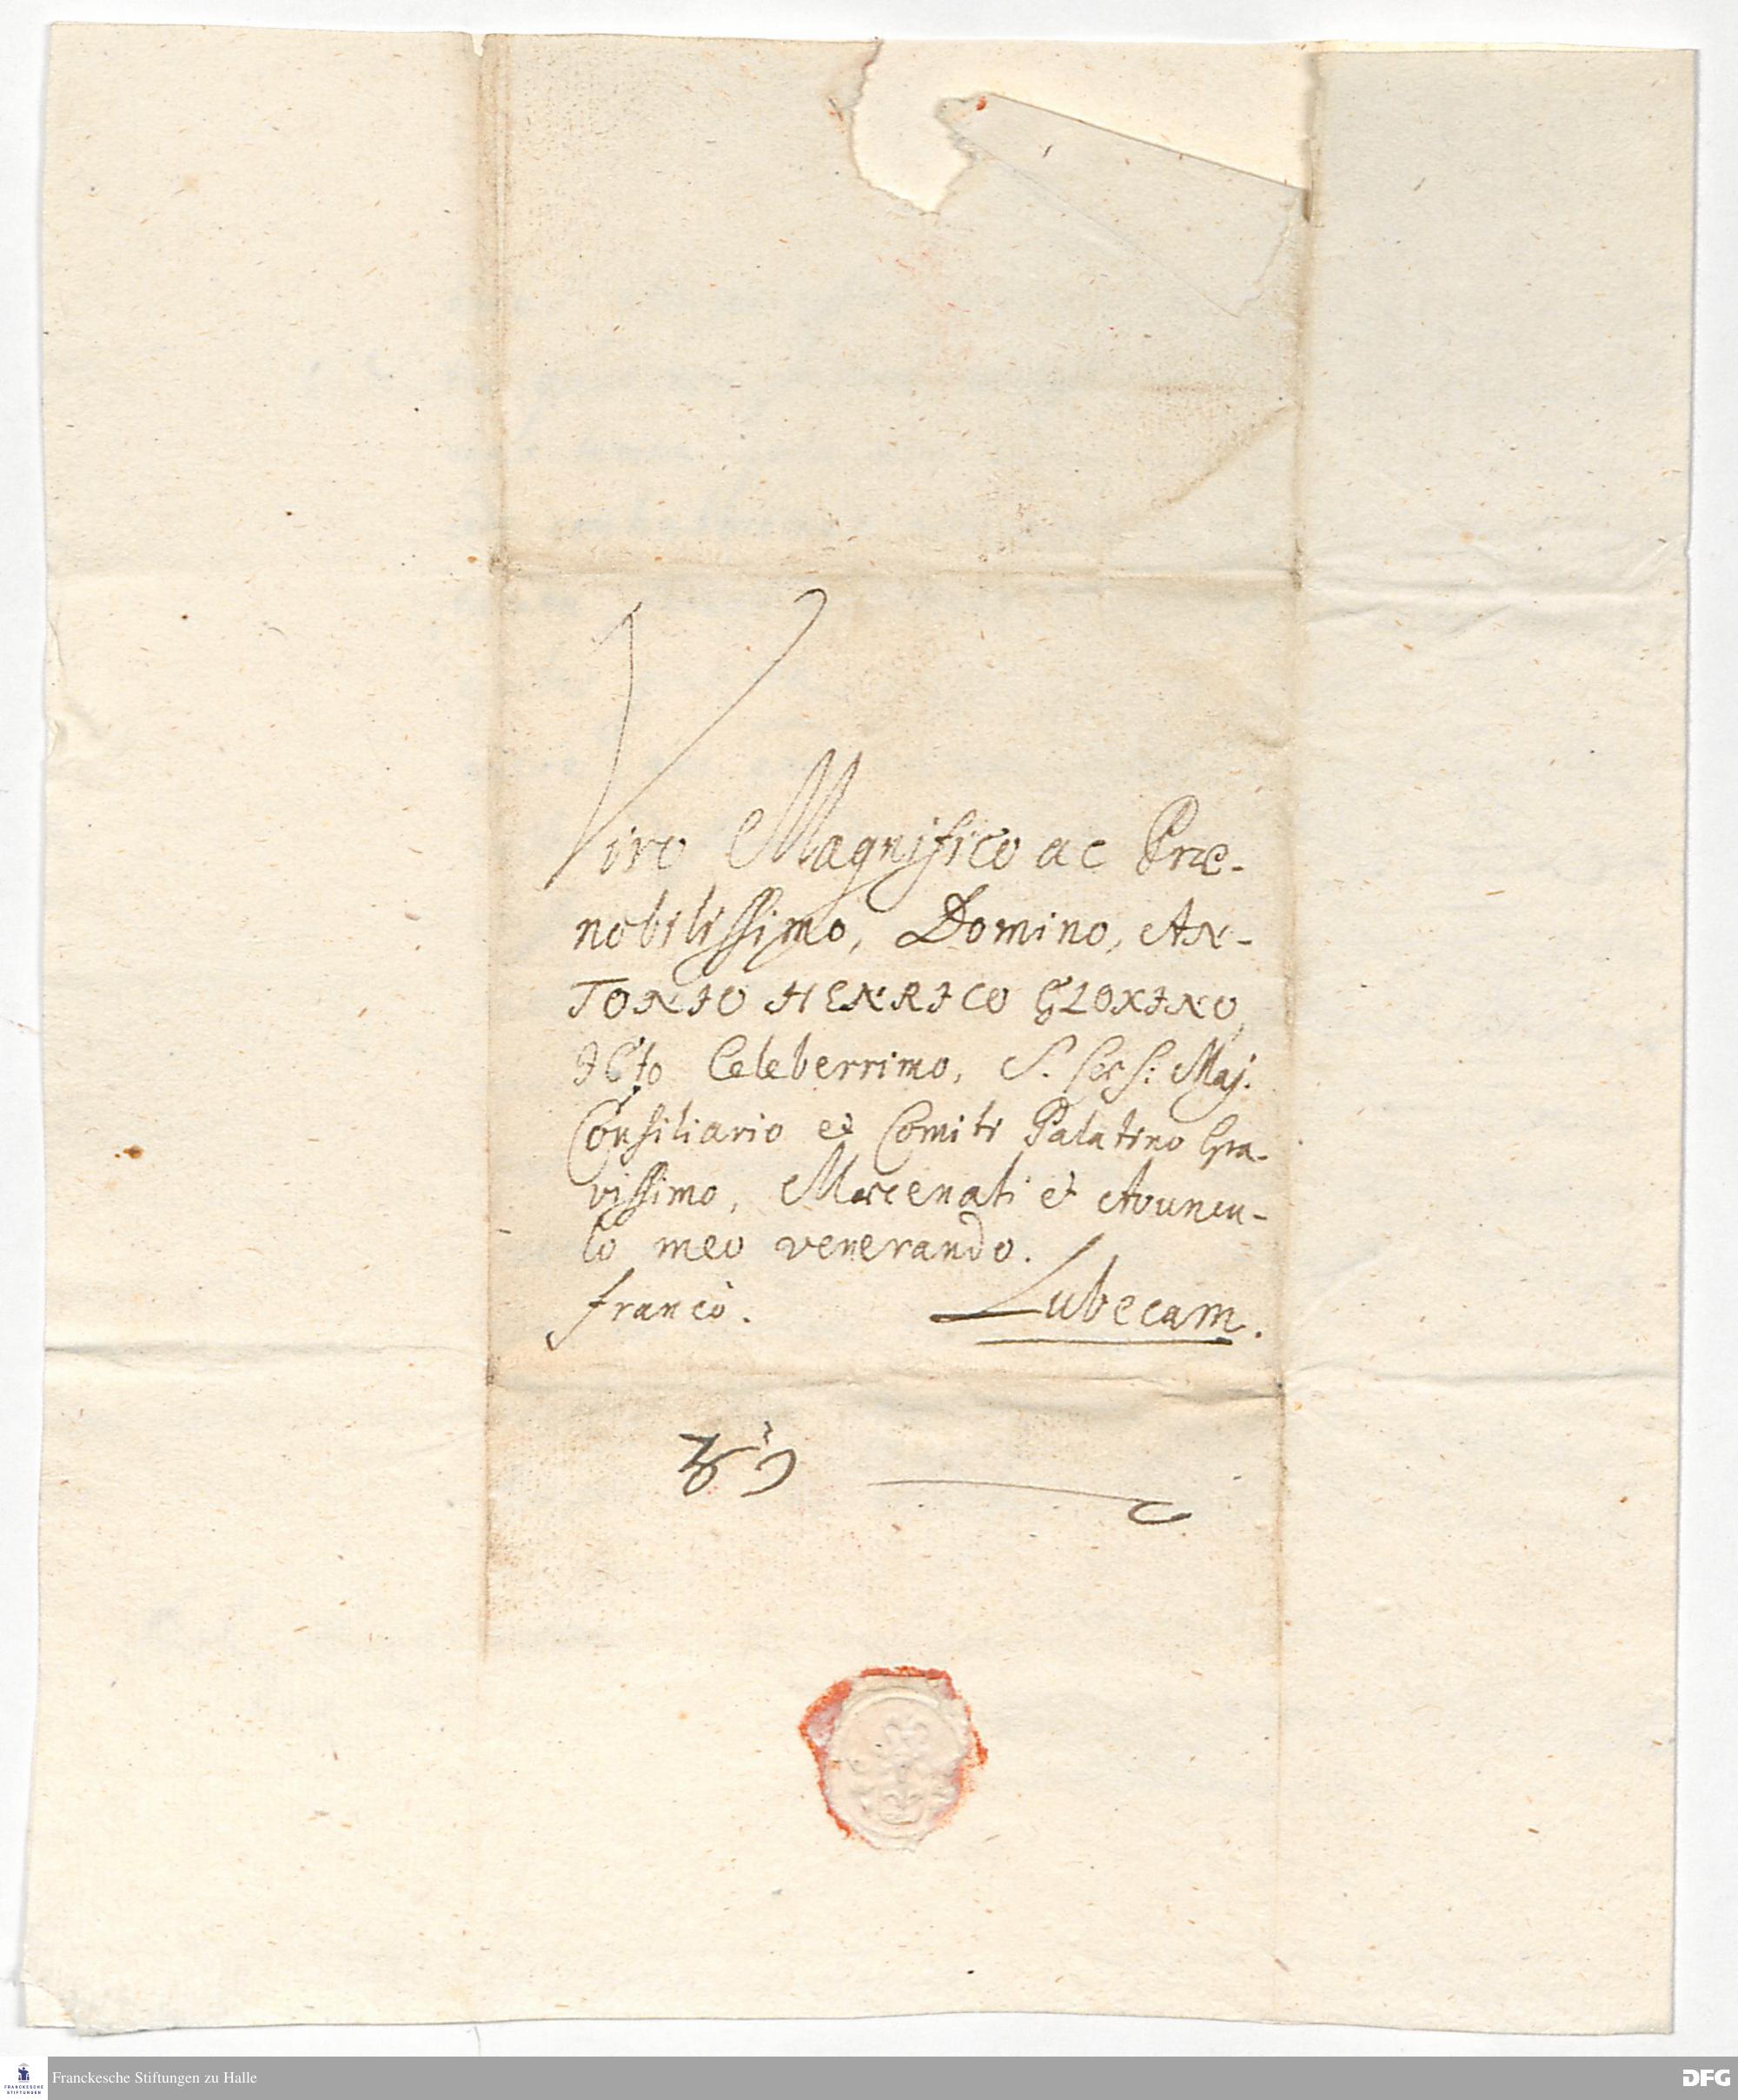 Viro Magnifico ac Præ-
nobilissimo, Domino, AN-
TONIO HENRICO GLOXINO,
ICto Celeberrimo, S. Cæs: Maj.
Consiliario et Comiti Palatino Gra-
vissimo, Mæcenati et Avuncu-
lo meo venerando.
francò. Lubecam.
Franckesche Stiftungen zu Halle
FRANCKESCHE
STIFTUNGEN
DFG